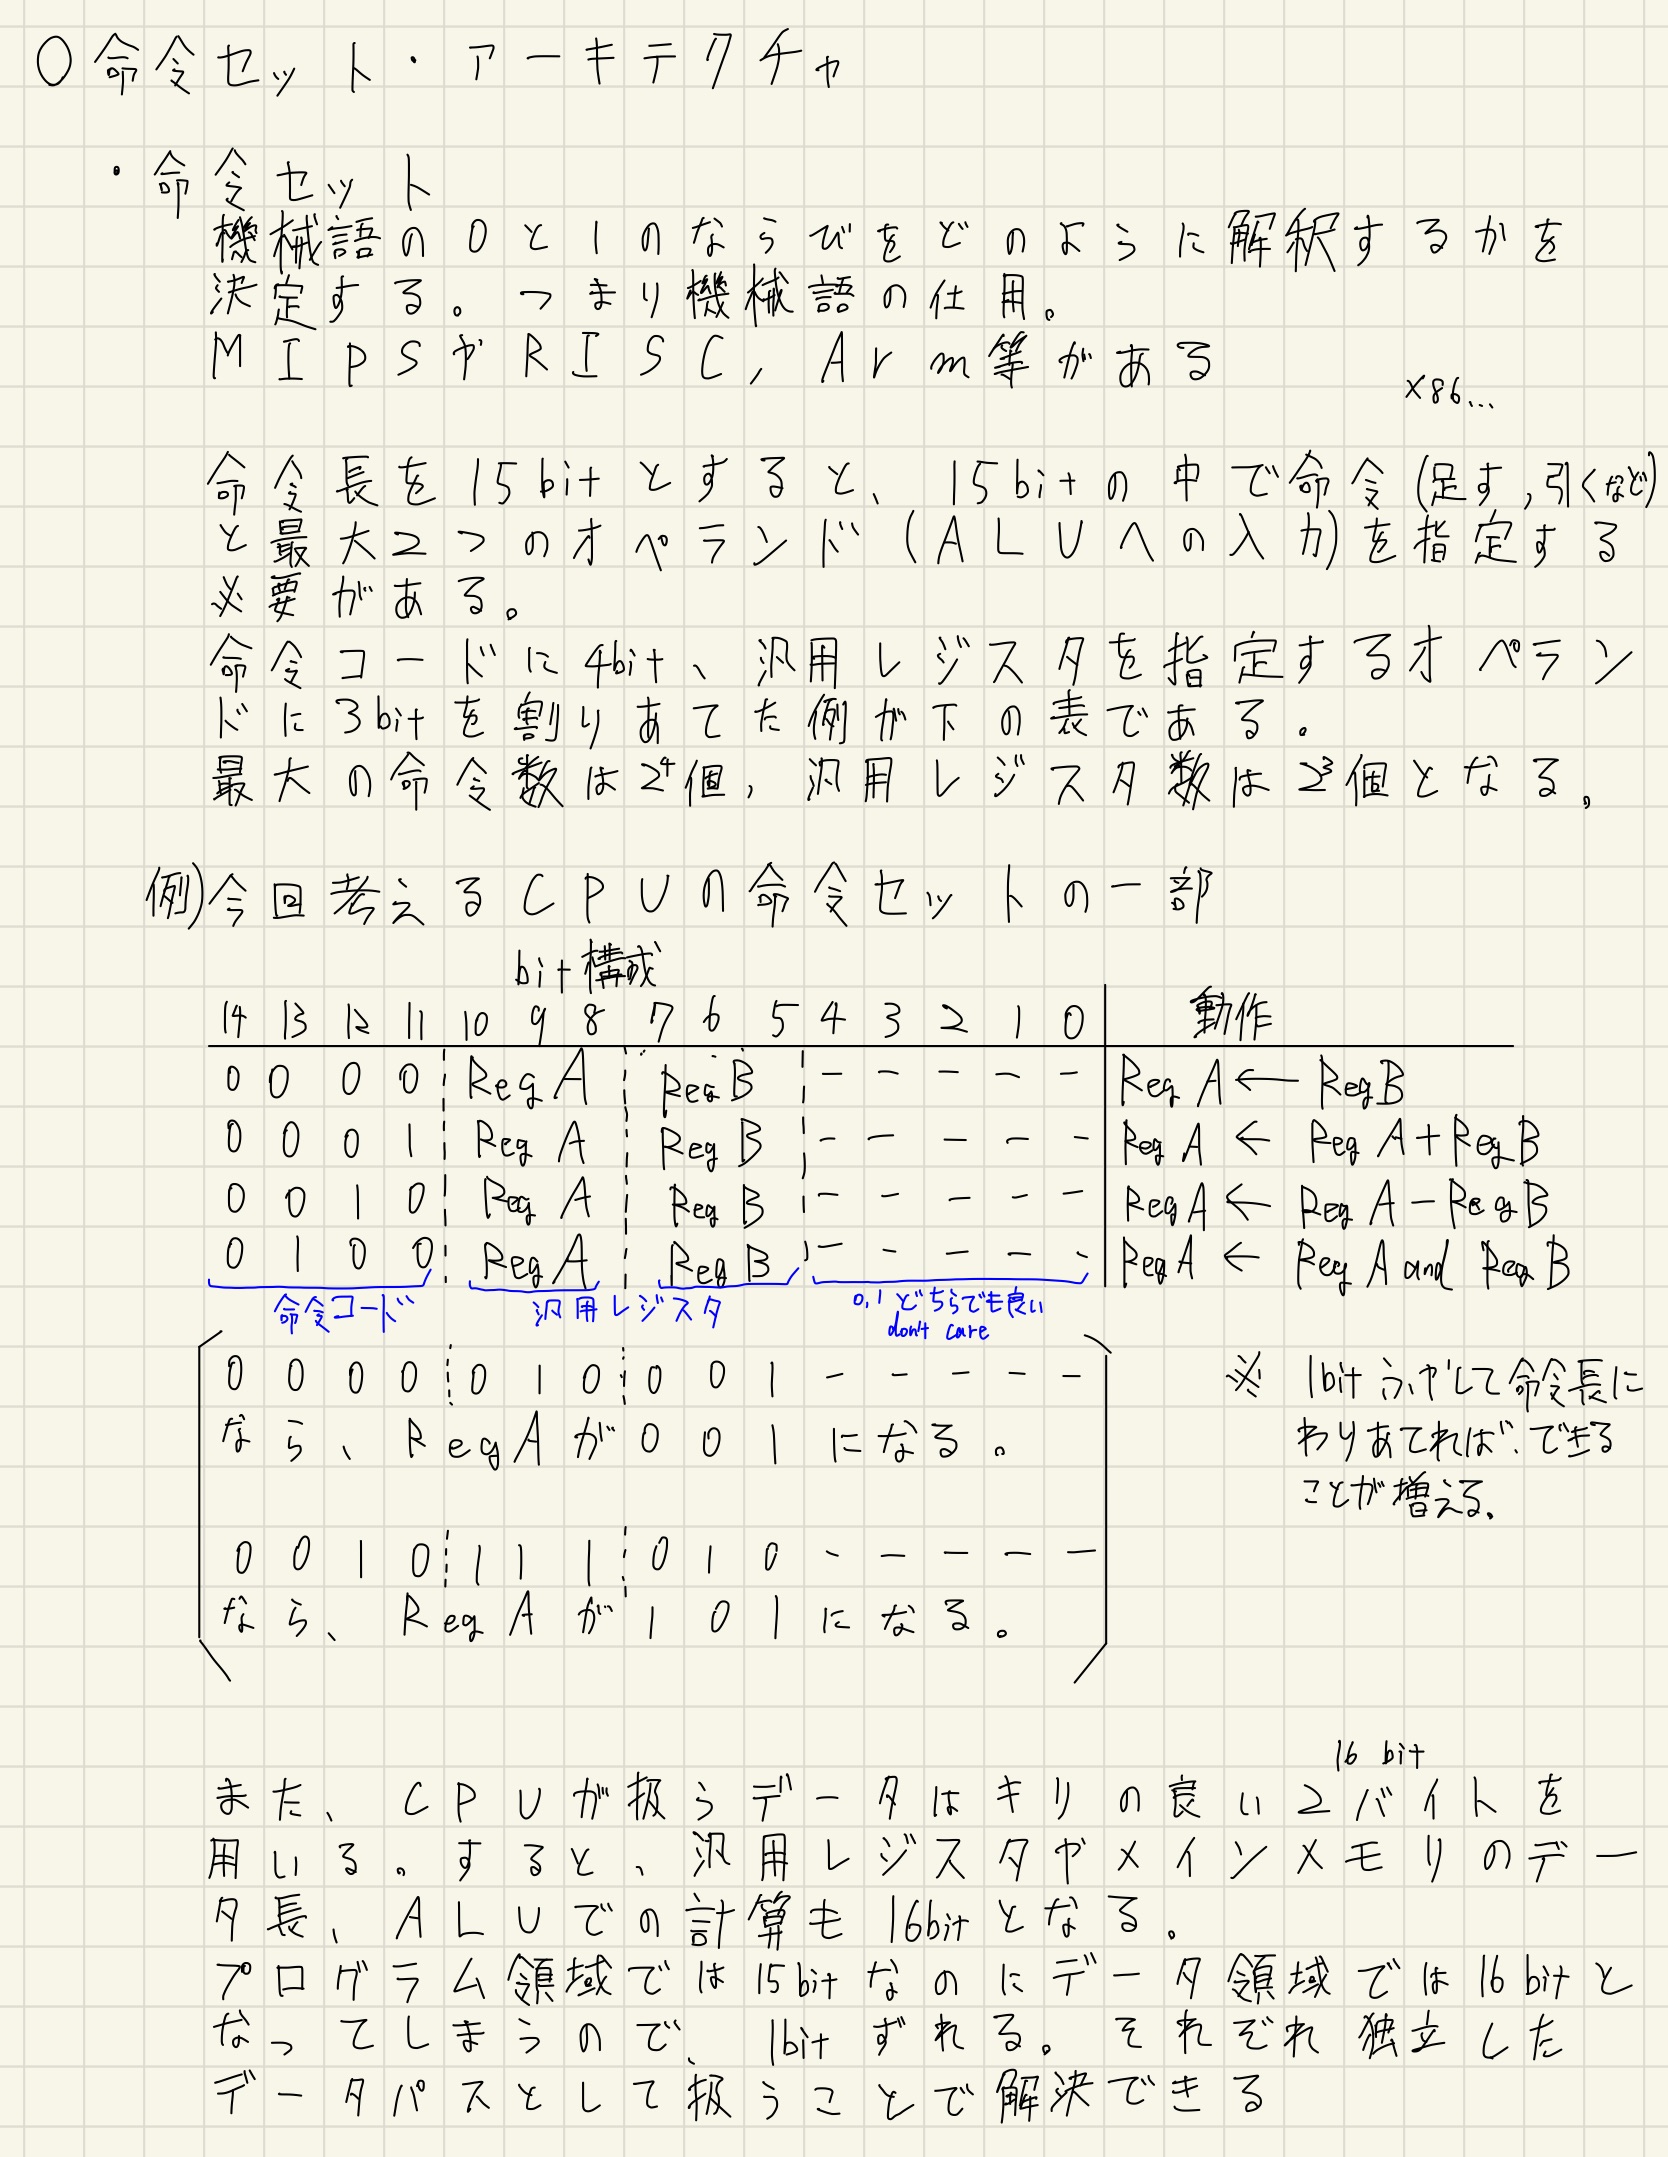 ○命令セット・アーキテクチャ
・命令セット
機械語の0と1のならびをどのように解釈するかを
決定する。つまり機械語の仕用。
MIPSやRISC, Arm等がある
x86...
命令長を15bitとすると、15bitの中で命令(足す,引くなど)
と最大2つのオペランド(ALUへの入力)を指定する
必要がある。
命令コードに4bit、汎用レジスタを指定するオペラン
ドに3bitを割りあてた例が下の表である。
最大の命令数は2⁴個,汎用レジスタ数は2³個となる。
例)今回考えるCPUの命令セットの一部
bit構成
14 13 12 11 10 9 8 7 6 5 4 3 2 1 0 動作
0 0 0 0 Reg A Reg B - - - - - Reg A ← Reg B
0 0 0 1 Reg A Reg B - - - - - Reg A ← Reg A + Reg B
0 0 1 0 Reg A Reg B - - - - - Reg A ← Reg A - Reg B
0 1 0 0 Reg A Reg B - - - - - Reg A ← Reg A and Reg B
命令コード 汎用レジスタ 0,1どちらでも良い
don't care
0 0 0 0 0 1 0 0 0 1 - - - - -
なら、Reg Aが001になる。
0 0 1 0 1 1 1 0 1 0 - - - - -
なら、Reg Aが101になる。
※ 1bitふやして命令長に
わりあてれば、できる
ことが増える。
16 bit
また、CPUが扱うデータはキリの良い2バイトを
用いる。すると、汎用レジスタやメインメモリのデー
タ長、ALUでの計算も16bitとなる。
プログラム領域では15bitなのにデータ領域では16bitと
なってしまうので、1bitずれる。それぞれ独立した
データパスとして扱うことで解決できる